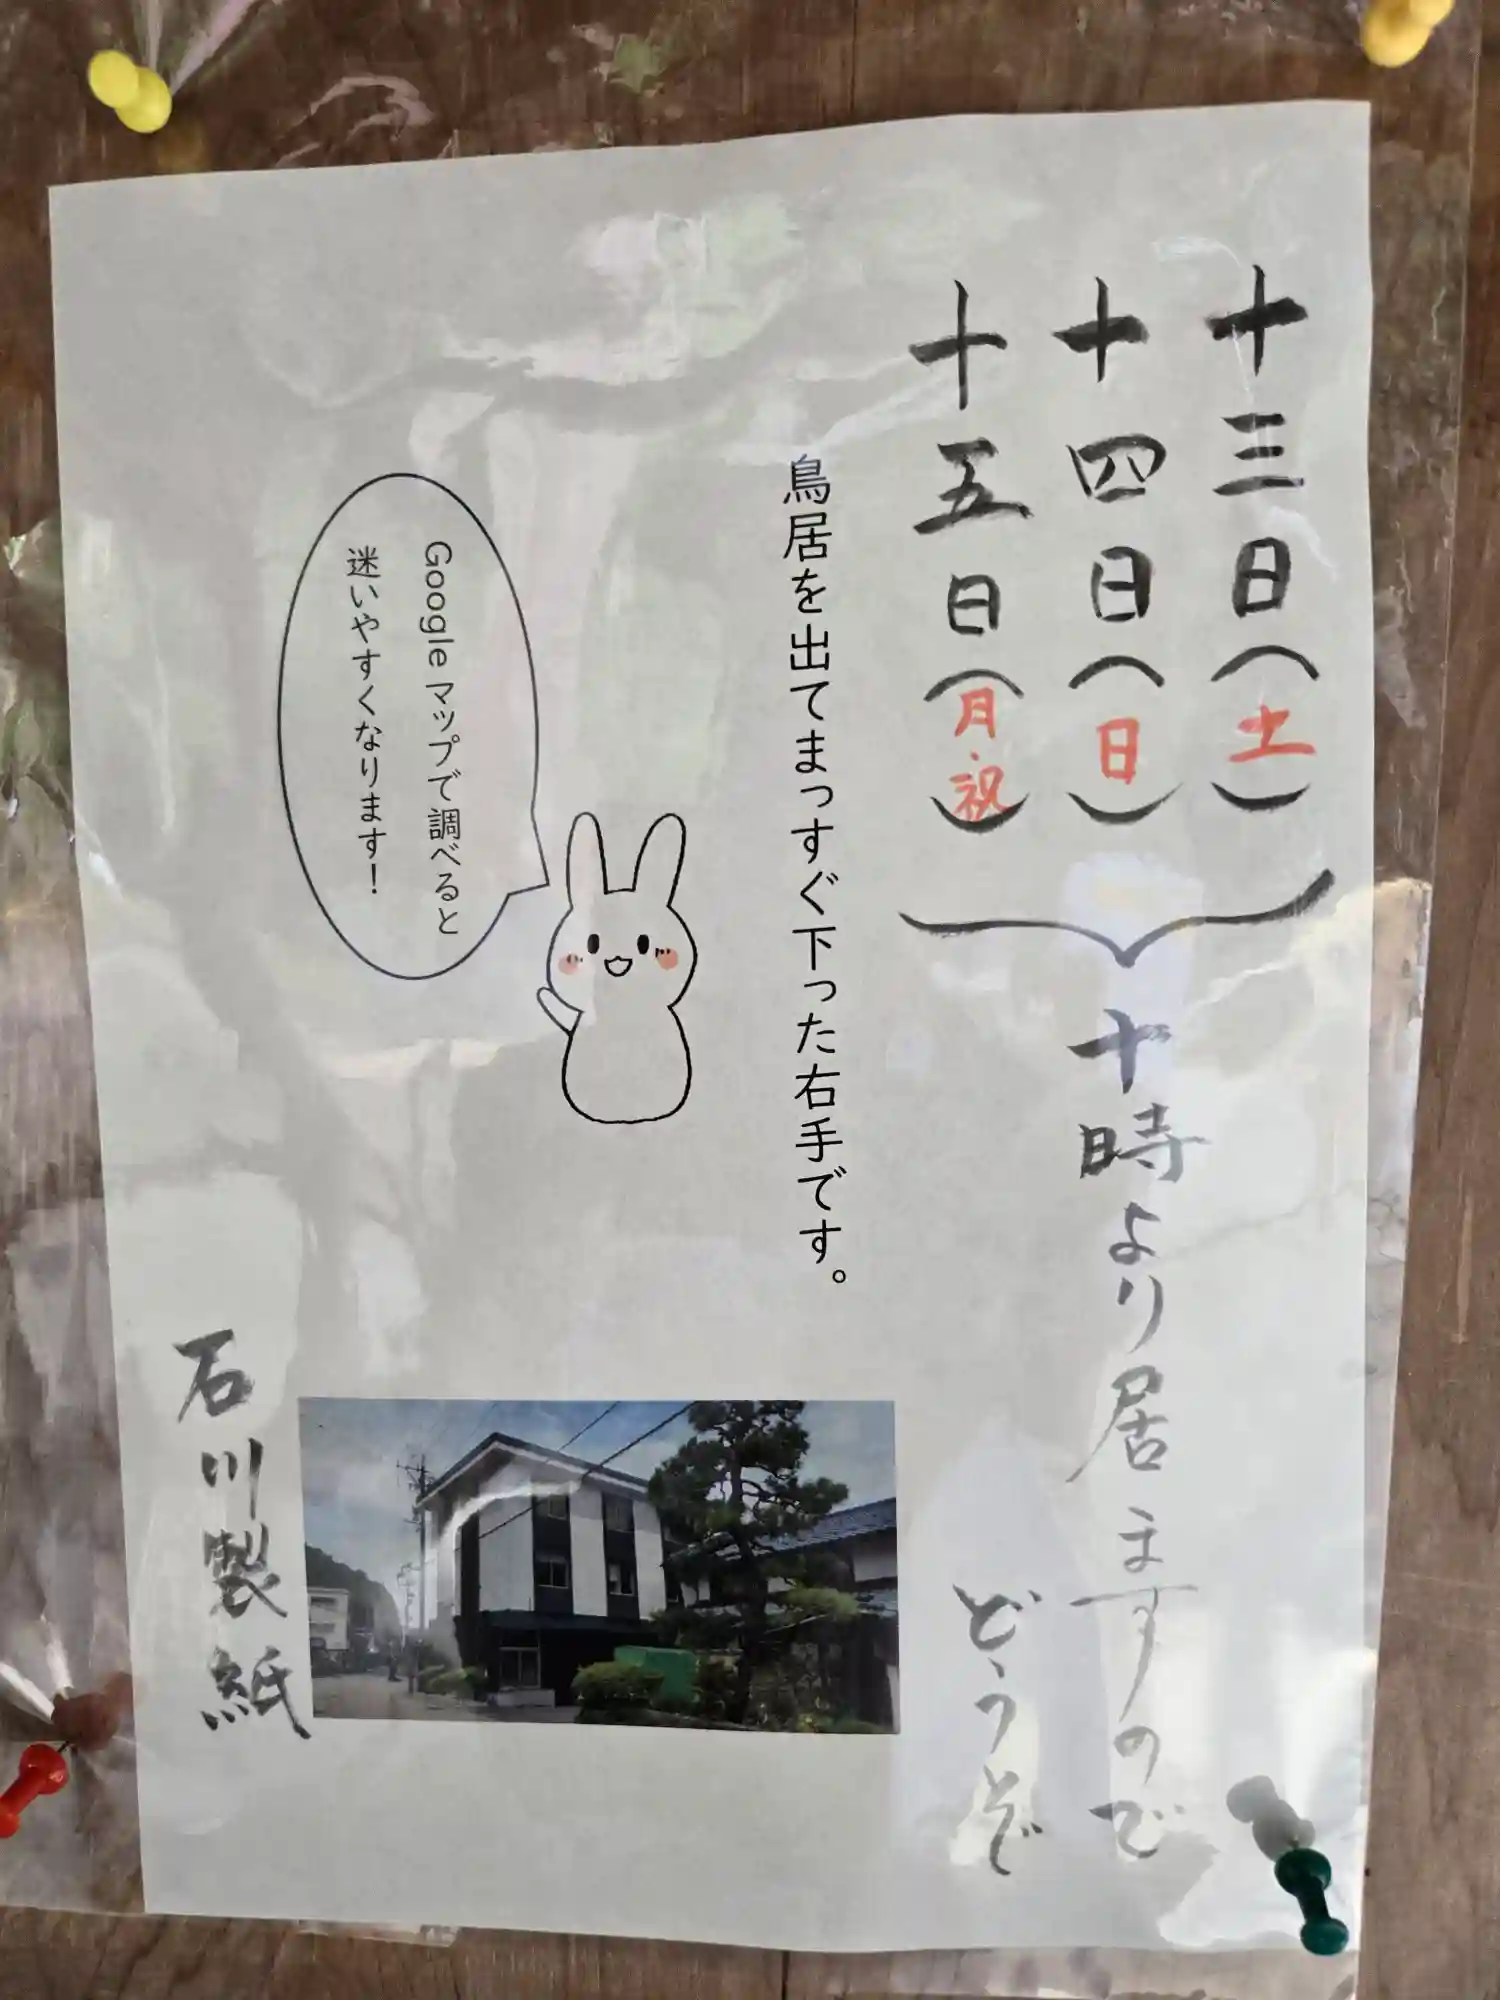 十三日(土)
十四日(日)
十五日(月・祝)
十時より居ますので
どうぞ
鳥居を出てまっすぐ下った右手です。
Googleマップで調べると
迷いやすくなります!
石川製紙